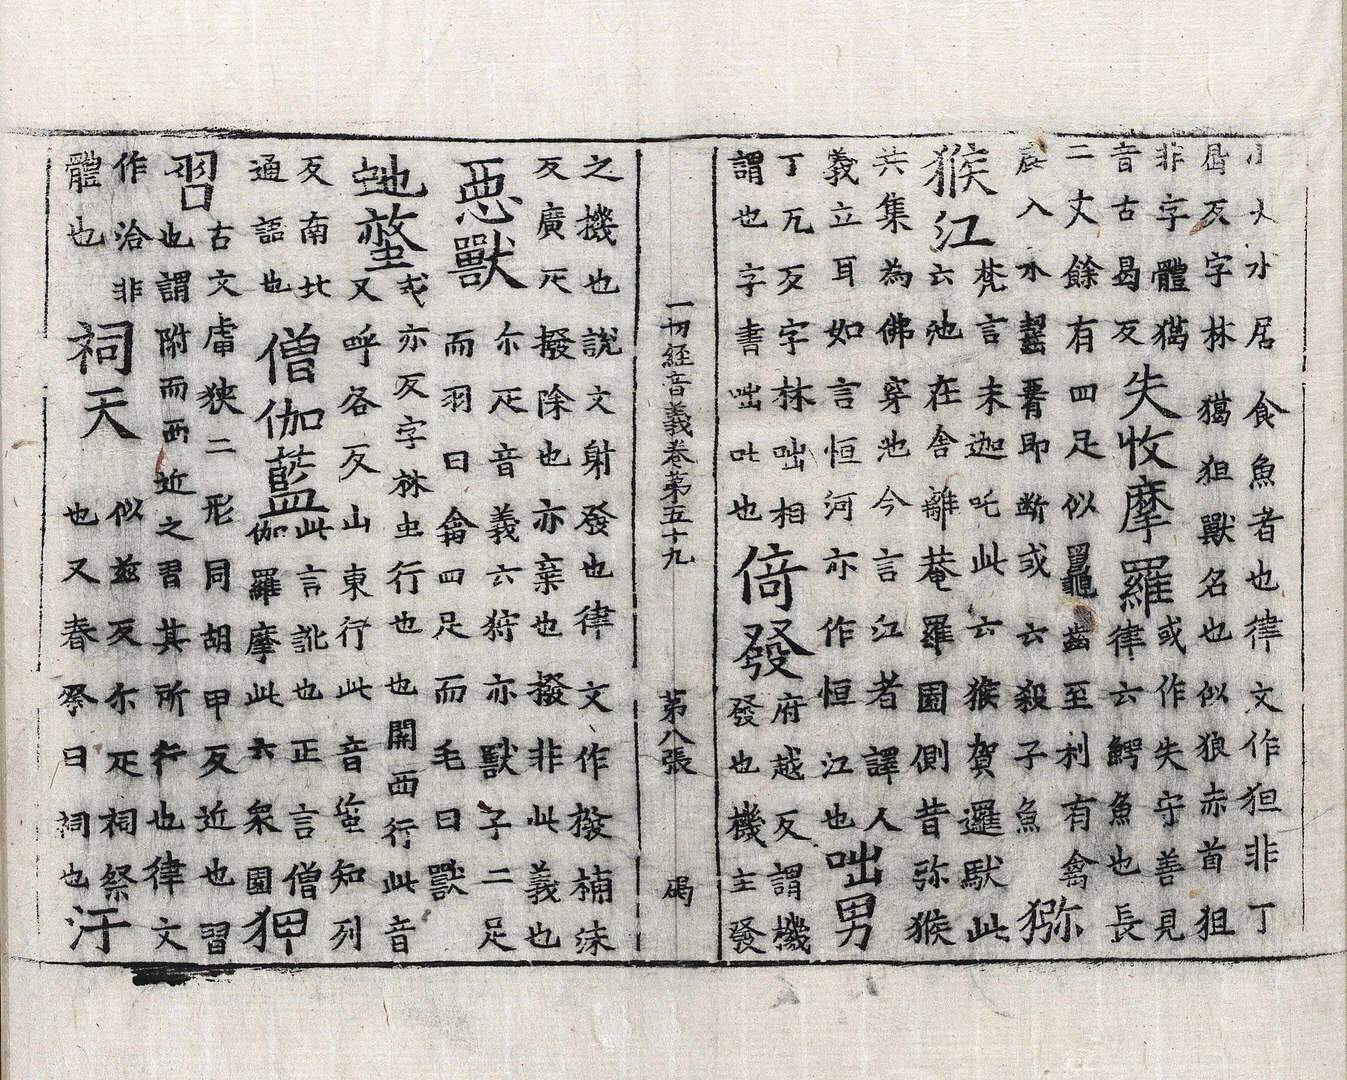 小犬水居食魚者也律文作狚非丁
曷反字林獦狚獸名也似狼赤首狙
非字體獦
音古曷反
失收摩羅
或作失守善見
律云鰐魚也長
二丈餘有四足似鼉齒至利有禽
鹿入水齧即斷或云殺子魚
獼
猴江
梵言末迦吒此云猴賀邏馱此
云池在舍離菴羅園側昔弥猴
共集為佛穿池今言江者譯人
義立耳如言恒河亦作恒江也
咄男
丁兀反字林咄相
謂也字書咄叱也
倚發
府越反謂機
發也機主發
一切經音義卷第五十九 第八張
之機也說文射發也律文作撥補沫
反廣疋撥除也亦棄也撥非此義也
惡獸
尒疋音義云狩亦獸子二足
而羽曰禽四足而毛曰獸
虵螫
式亦反字林虫行也也開西行此音
又呼各反山東行此音蛆知列
反南北
通語也
僧伽藍
此言訛也正言僧
伽羅摩此云衆園
狎
習
古文庘狹二形同胡甲反近也習
也謂附而近之習其所行也律文
作洽非
體也
祠天
似茲反尒疋祠祭
也又春祭曰祠也
汙